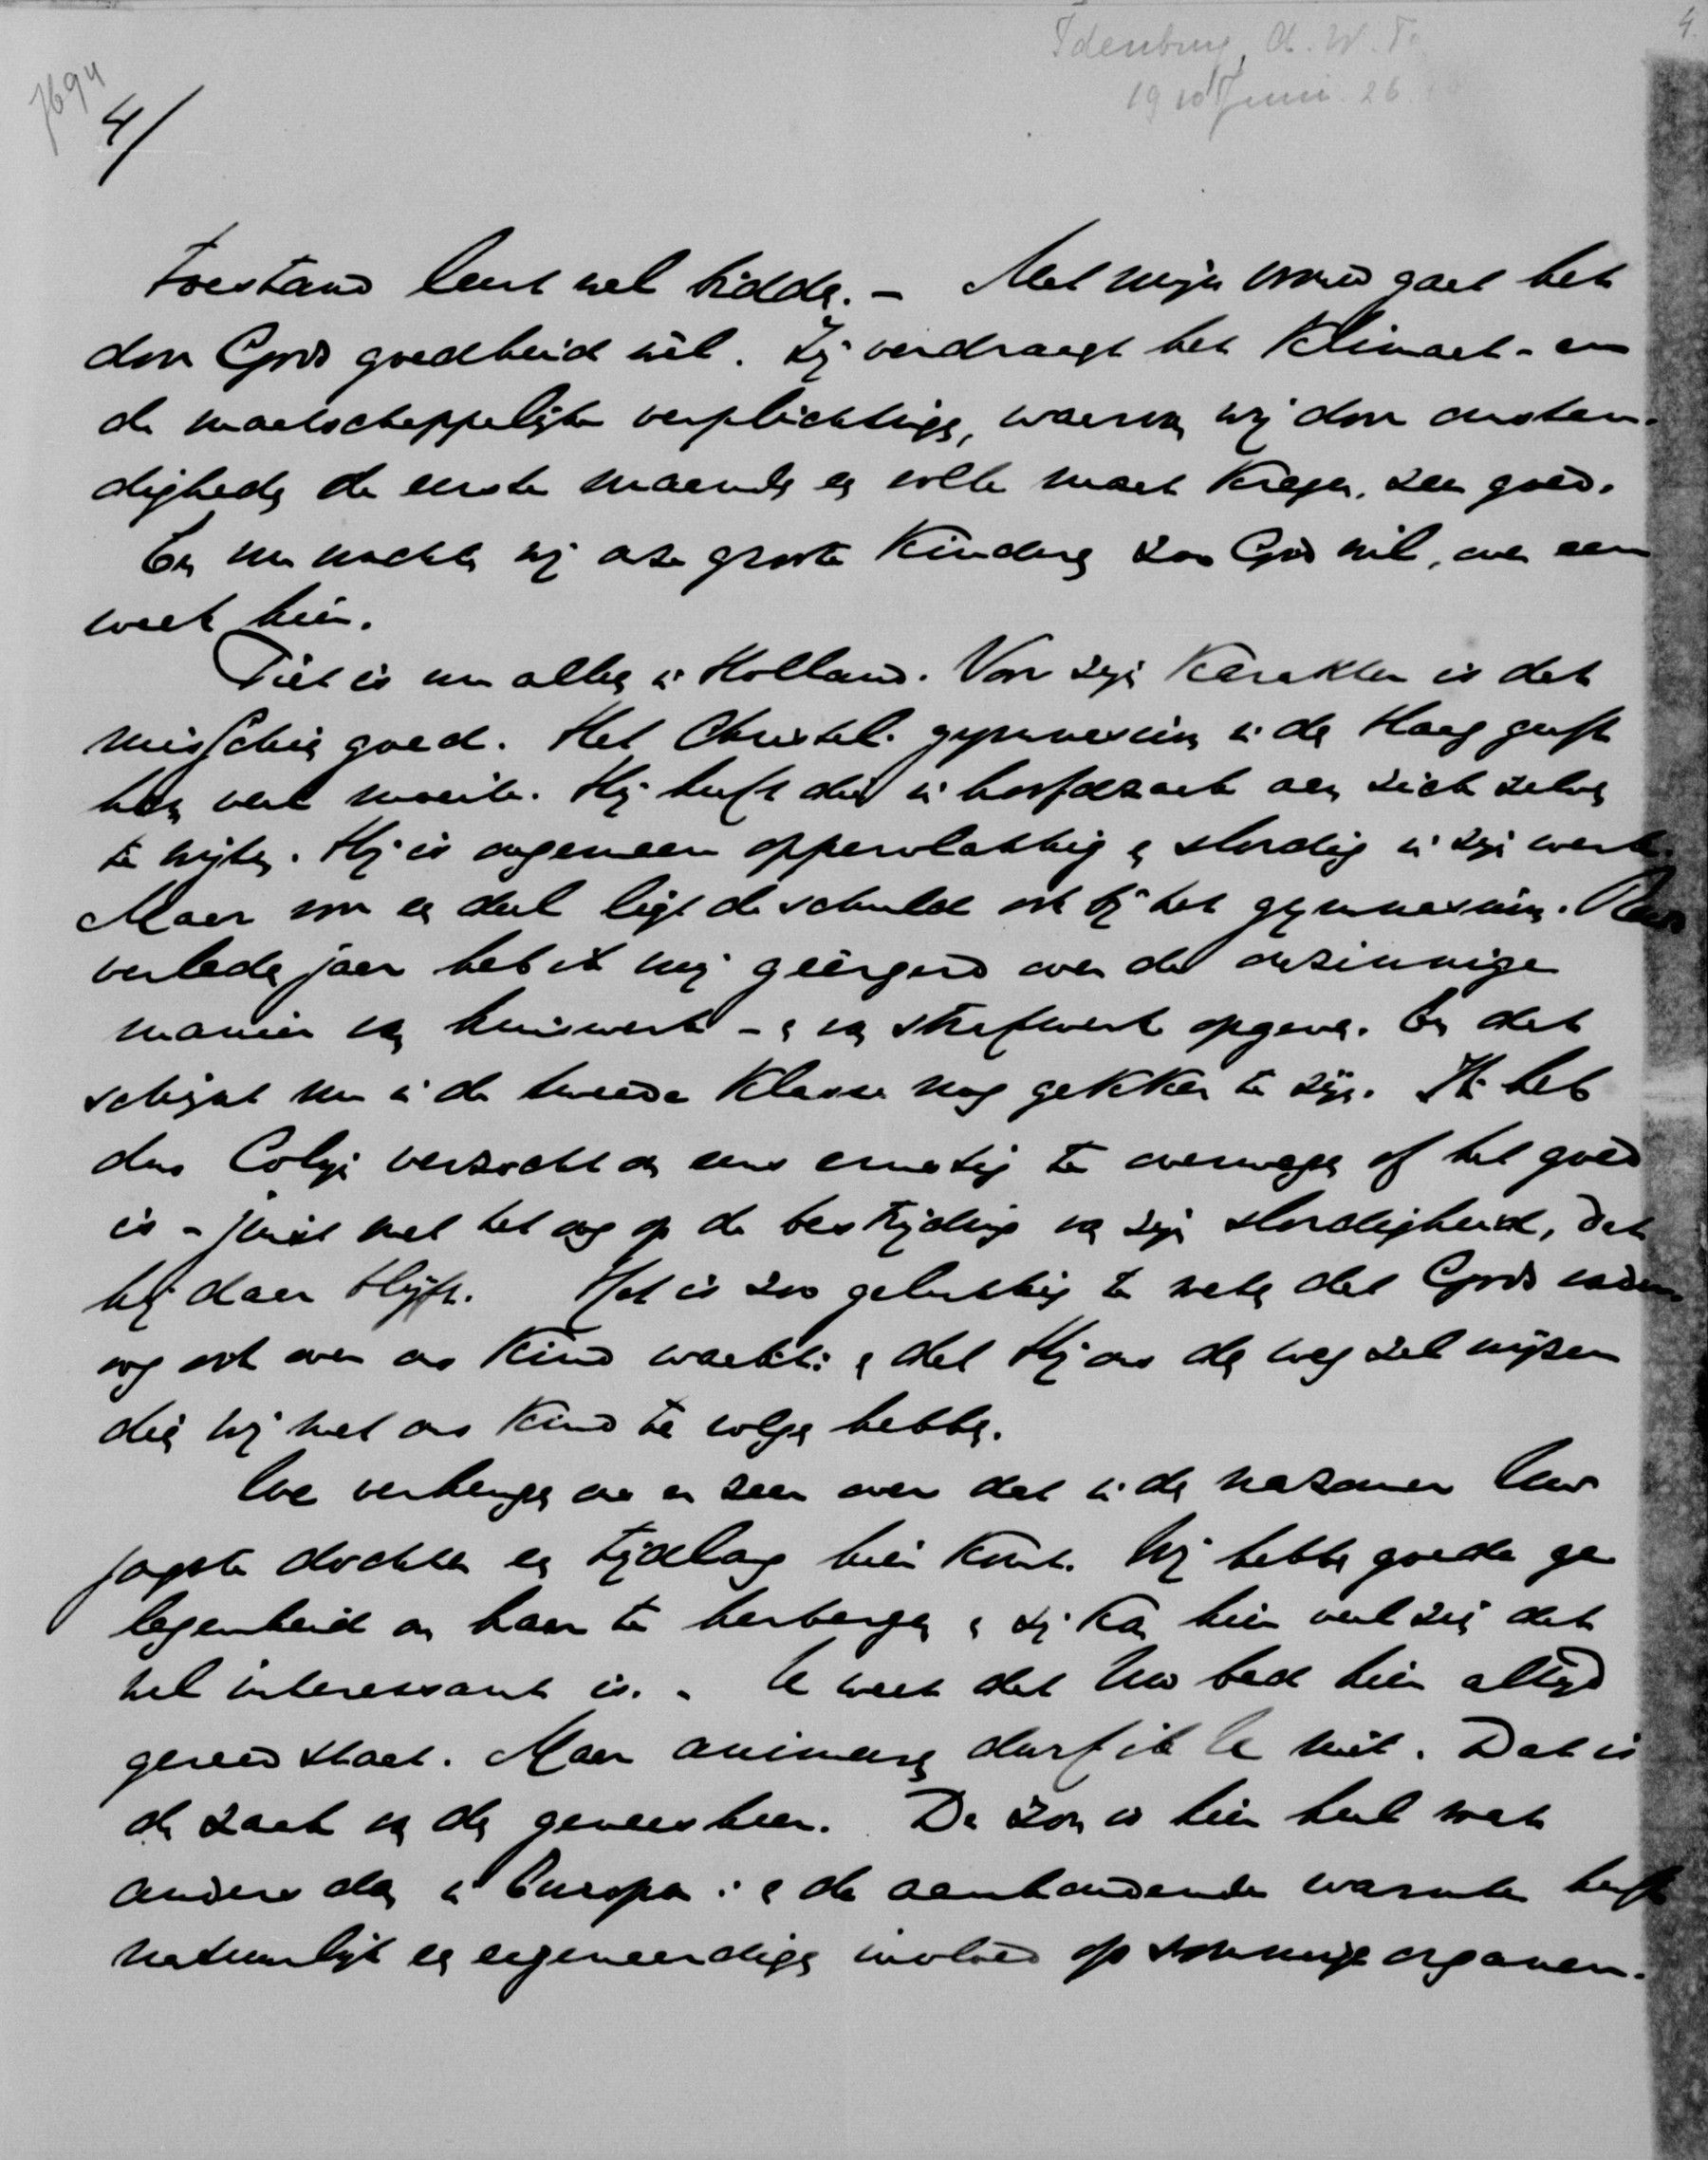 Idenburg, A.W.F.
1910 Juni 26
4.
7694
4/
toestand leert wel bidden. – Met mijn vrouw gaat het
door Gods goedheid wèl. Zij verdraagt het klimaat - en
de maatschappelijke verplichtingen, waarvan wij door omstan-
digheden de eerste maanden een volle maat kregen, zeer goed.
En nu wachten wij onze groote kinderen zoo God wil, over een
week hier.
Piet is nu alleen in Holland. Voor zijn karakter is dat
misschien goed. Het Christel. gymnasium in den Haag geeft
hem veel moeite. Hij heeft dit in hoofdzaak aan zich zelven
te wijten. Hij is ongemeen oppervlakkig en slordig in zijn werk.
Maar voor een deel ligt de schuld ook bij het gymnasium. Reeds
verleden jaar heb ik mij geërgerd over de onzinnige
manier van huiswerk - en van strafwerk opgeven. En dat
schijnt nu in de tweede klasse nog gekker te zijn. Ik heb
dus Colijn verzocht om eens ernstig te overwegen of het goed
is - juist met het oog op de bestrijding van zijn slordigheid, dat
hij daar blijft. Het is zoo gelukkig te weten dat Gods vader-
oog ook over ons kind waakt: en dat Hij ons den weg zal wijzen
dien wij met ons kind te volgen hebben.
We verheugen ons er zeer over dat in den nazomer Uw
jongste dochter een tijdlang hier komt. Wij hebben goede ge
legenheid om haar te herbergen en zij kan hier veel zien dat
wel interessant is. - U weet dat Uw bed hier altijd
gereed staat. Maar animeeren durf ik U niet. Dat is
de zaak van den geneesheer. De zon is hier heel wat
anders dan in Europa: en de aanhoudende warmte heeft
natuurlijk een eigenaardigen invloed op sommige organen.